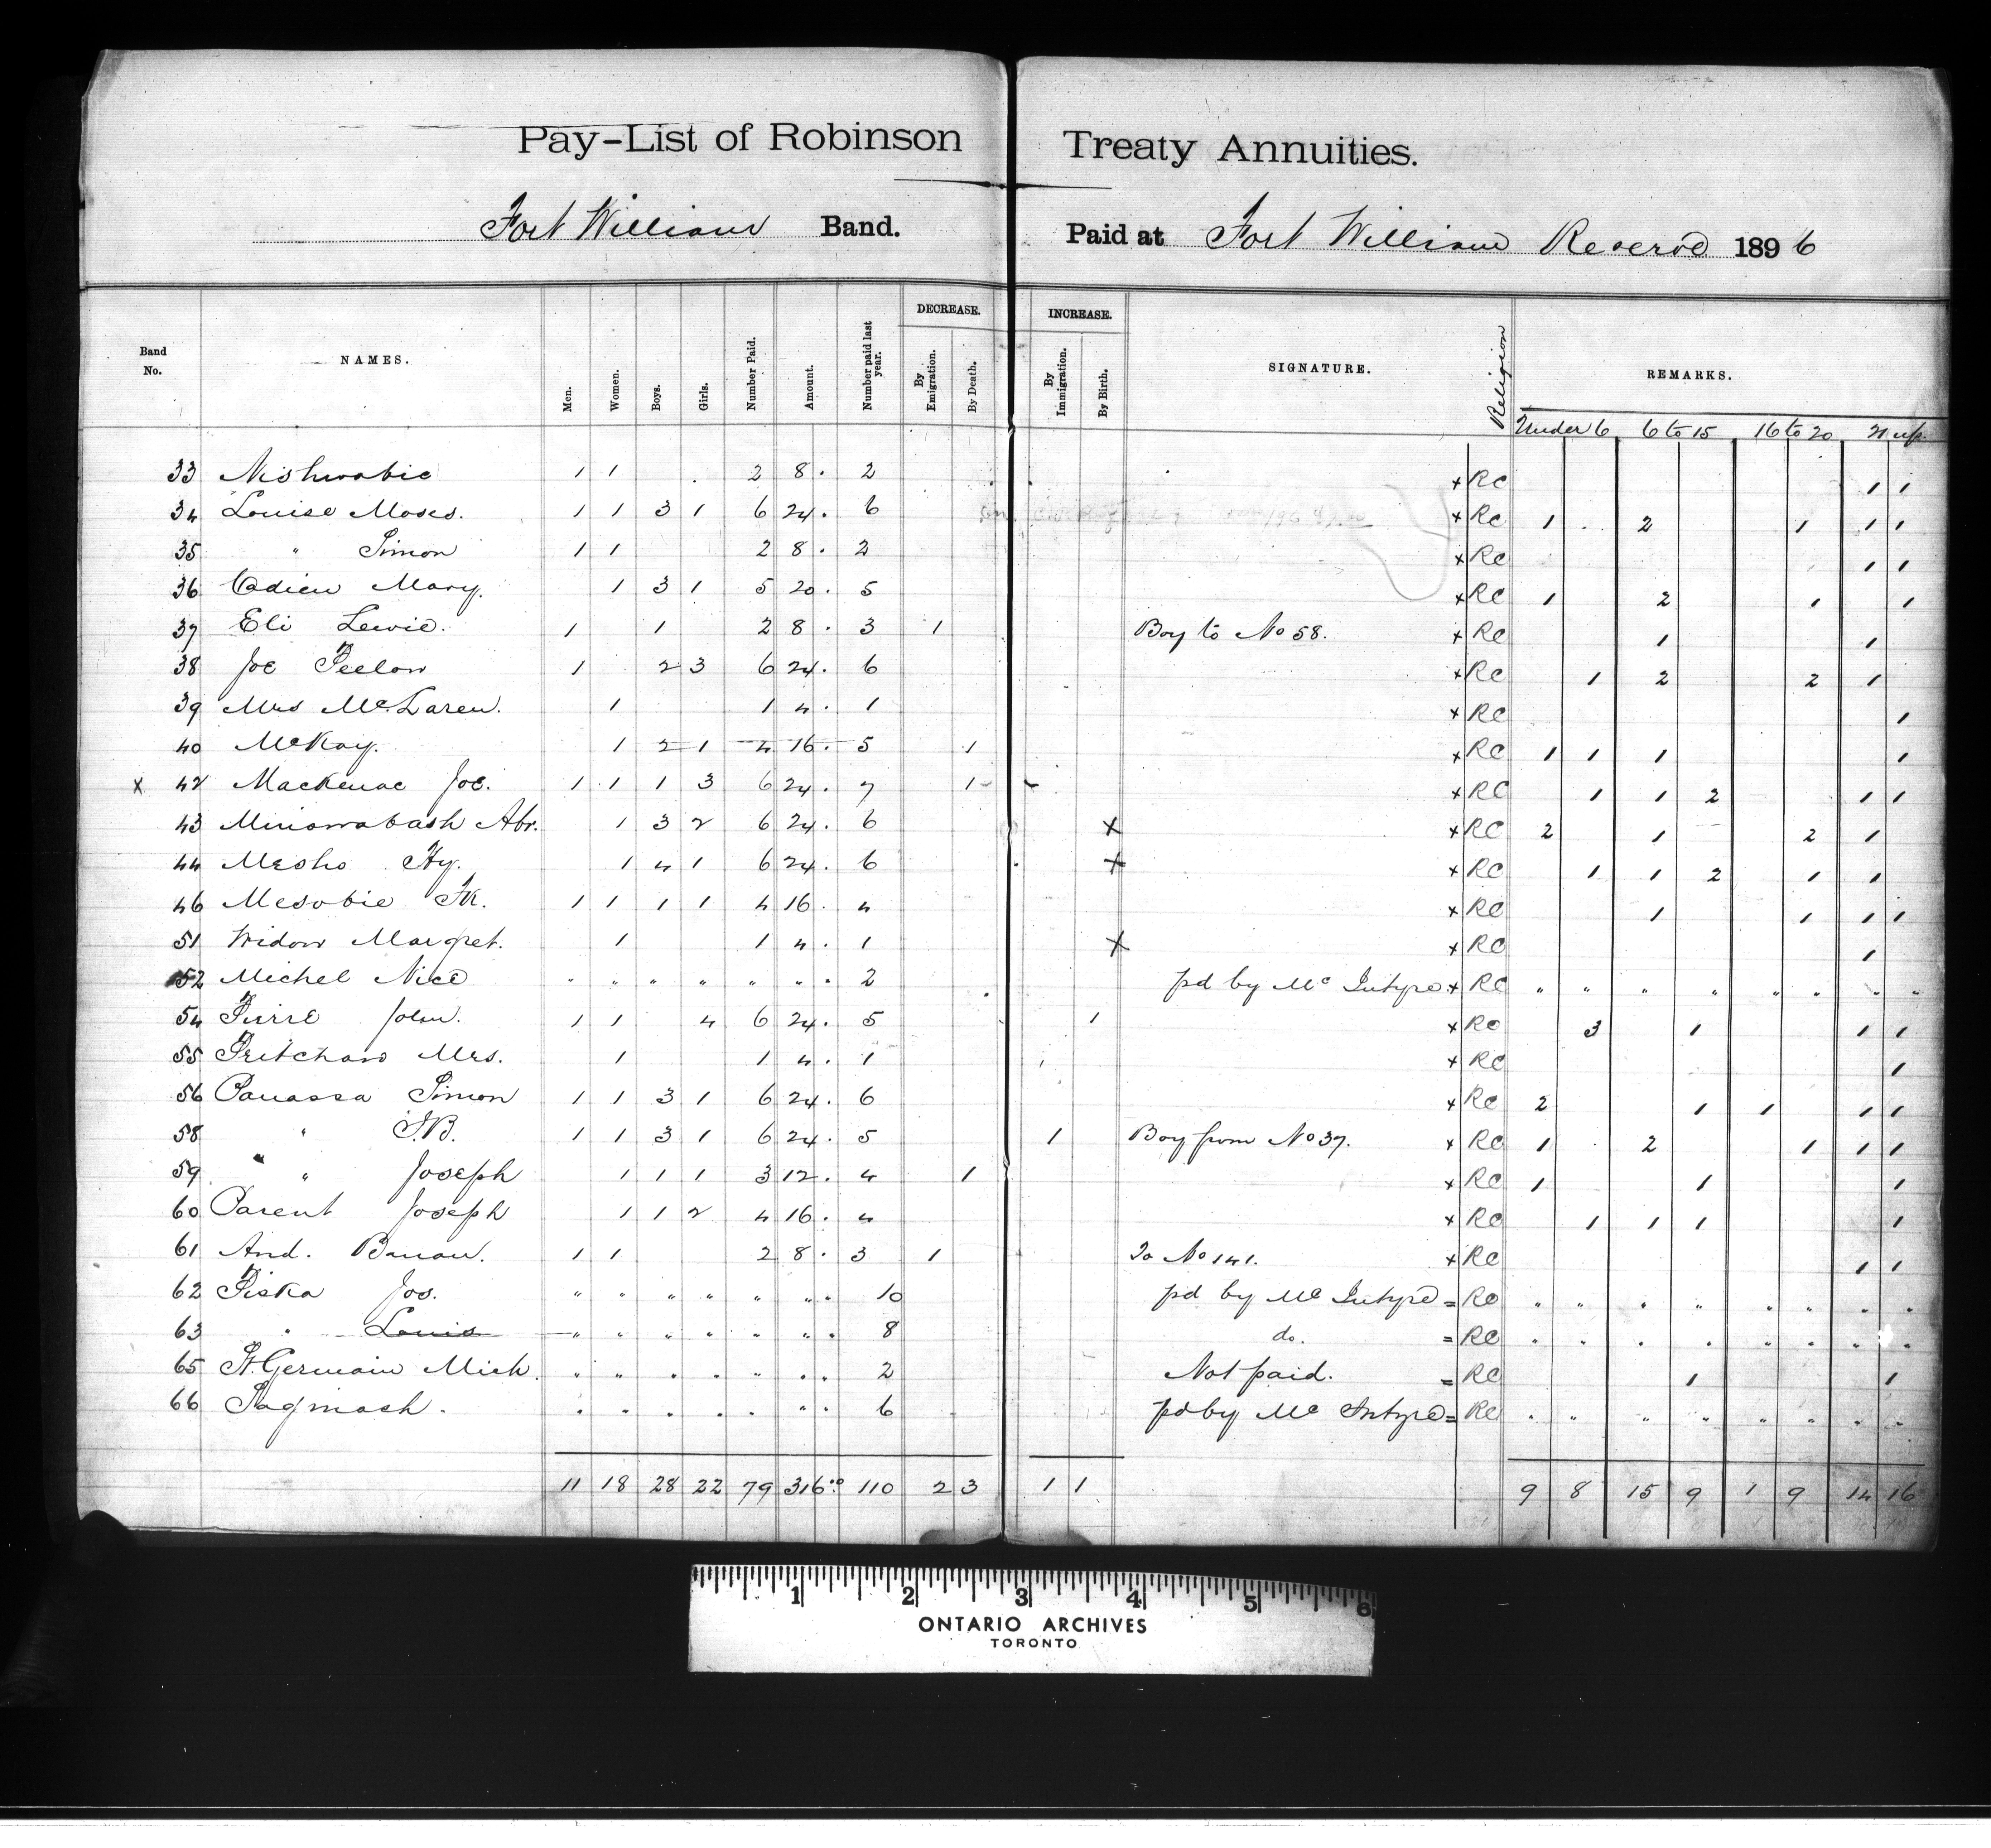 Pay-List of Robinson Treaty Annuities.
Fort William Band. Paid at Fort William Reserve 1896
Band No. NAMES. Men. Women. Boys. Girls. Number Paid. Amount. Number paid last year. DECREASE. By Emigration. By Death. INCREASE. By Immigration. By Birth. SIGNATURE. Religion REMARKS.
Under 6 6 to 15 16 to 20 21 up
33 Nishwabie 1 1 2 8. 2 x RC 1 1
34 Louise Moses. 1 1 3 1 6 24. 6 x RC 1 2 1 1 1
35 " Simon 1 1 2 8. 2 x RC 1 1
36 Cadieu Mary. 1 3 1 5 20. 5 x RC 1 2 1 1
37 Eli Lewie. 1 1 2 8. 3 1 Boy to No 58. x RC 1 1
38 Joe Peelow 1 2 3 6 24. 6 x RC 1 2 2 1
39 Mrs McLaren. 1 1 4. 1 x RC 1
40 McKay. 1 2 1 4 16. 5 1 x RC 1 1 1 1
x 42 Mackenac Joe. 1 1 1 3 6 24. 7 1 - - x RC 1 1 2 1 1
43 Minowabash Abr. 1 3 2 6 24. 6 x x RC 2 1 2 1
44 Mesho Hy. 1 4 1 6 24. 6 x x RC 1 1 2 1 1
46 Mesobie Fk. 1 1 1 1 4 16. 4 x RC 1 1 1 1
51 Widow Margret. 1 1 4. 1 x x RC 1
52 Michel Nice " " " " " " 2 pd by Mc Intyre x RC " " " " " " " "
54 Pierre John. 1 1 4 6 24. 5 1 x RC 3 1 1 1
55 Pritchard Mrs. 1 1 4. 1 x RC 1
56 Panassa Simon 1 1 3 1 6 24. 6 x RC 2 1 1 1 1
58 " J.B. 1 1 3 1 6 24. 5 1 Boy from No 37. x RC 1 2 1 1 1
59 " " Joseph 1 1 1 3 12. 4 1 x RC 1 1 1
60 Parent Joseph 1 1 2 4 16. 4 x RC 1 1 1 1
61 And. Banan. 1 1 2 8. 3 1 To No 141. x RC 1 1
62 Piska Jos. " " " " " " 10 pd by Mc Intyre = RC " " " " " " " "
63 " Louis " " " " " " 8 do. = RC " " " " " " " "
65 St. Germain Mich. " " " " " " 2 Not paid. = RC 1 1
66 Saginash. " " " " " " 6 pd by Mc Intyre = RC " " " " " " " "
11 18 28 22 79 316.00 110 2 3 1 1 9 8 15 9 1 9 14 16
1 2 3 4 5 6
ONTARIO ARCHIVES
TORONTO